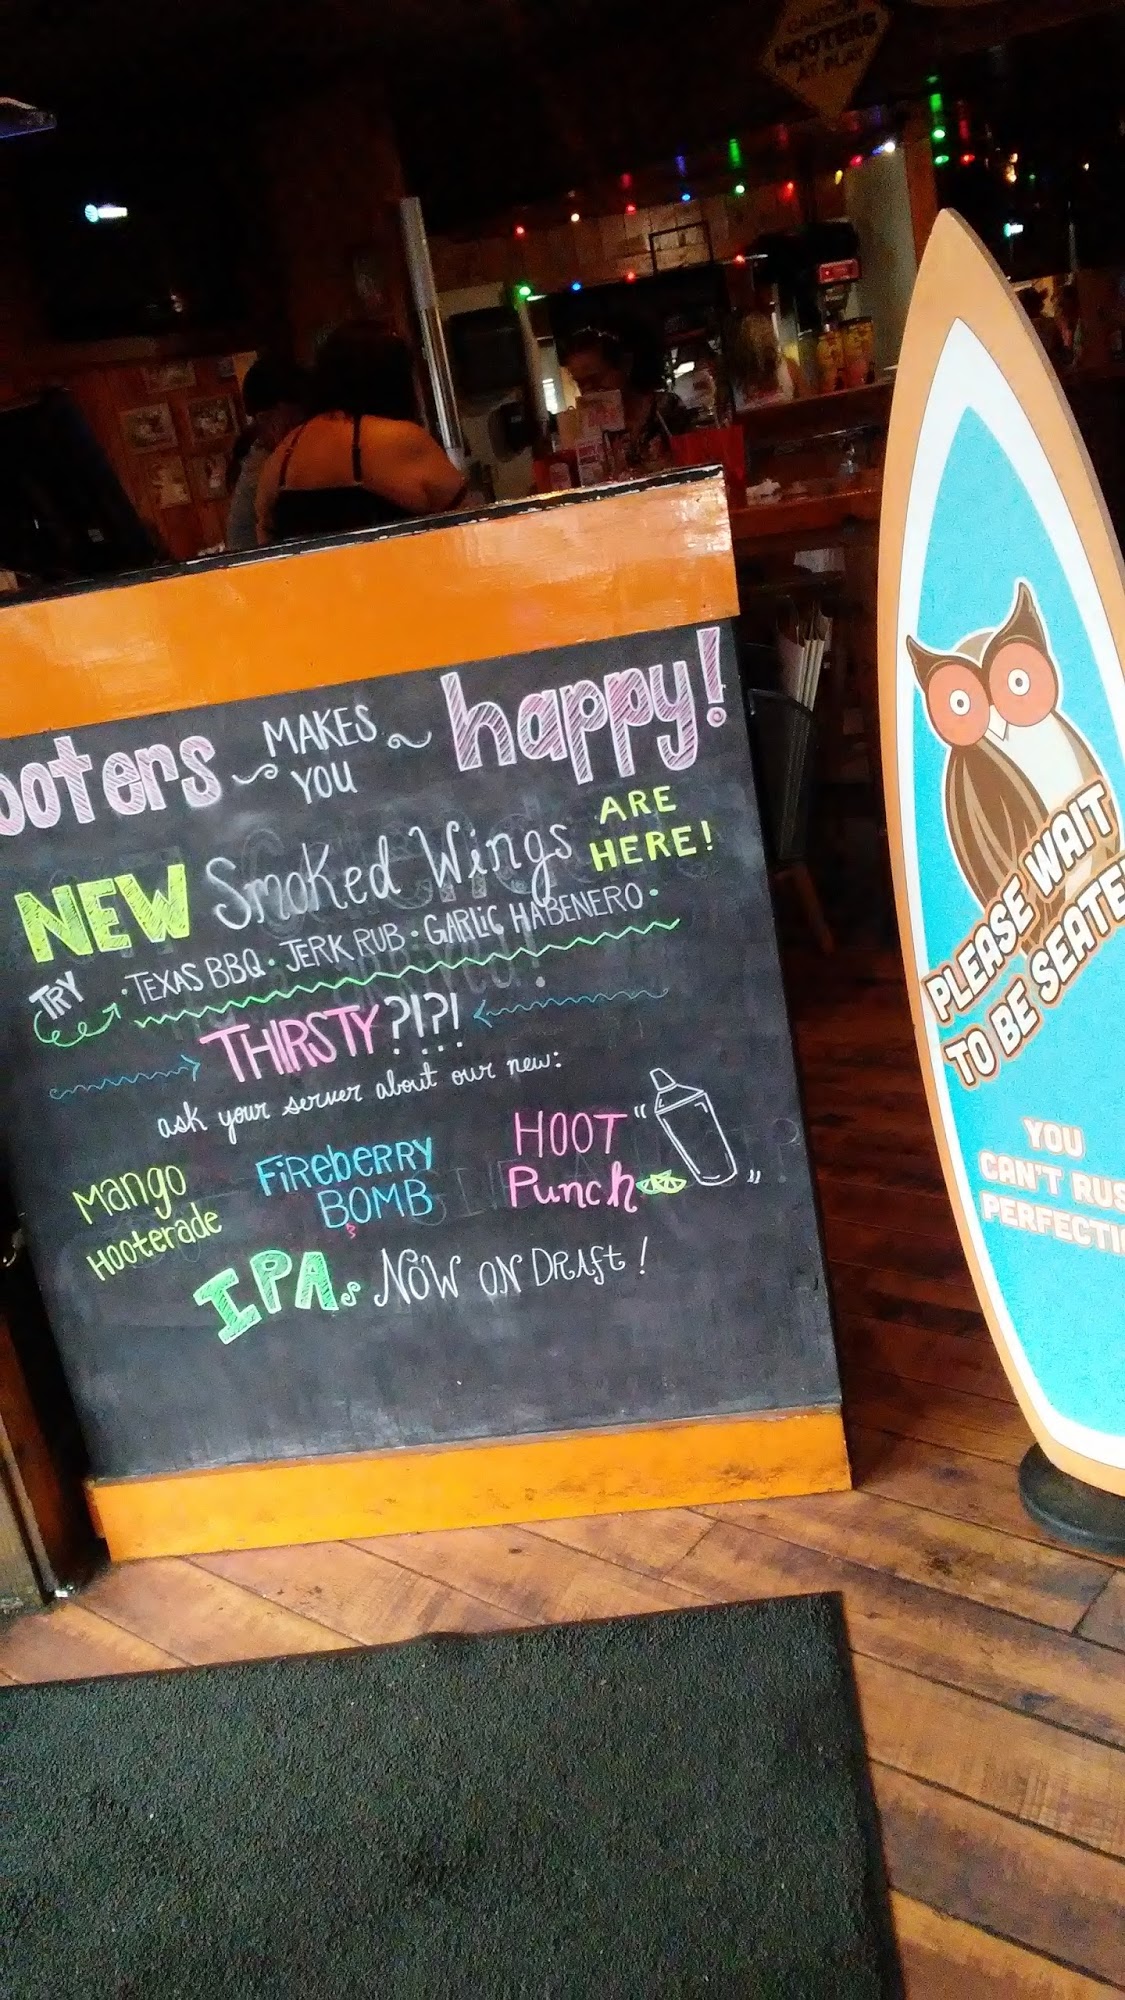 CAUTION
HOOTERS
AT PLAY
ooters MAKES YOU happy!
NEW Smoked Wings ARE HERE!
TRY · TEXAS BBQ · JERK RUB · GARLIC HABENERO ·
THIRSTY?!?!
ask your server about our new:
Mango Hooterade
FiREBERRY BOMB
HOOT Punch
IPAs NOW ON DRAft!
PLEASE WAIT
TO BE SEATE
YOU
CAN'T RUS
PERFECTI